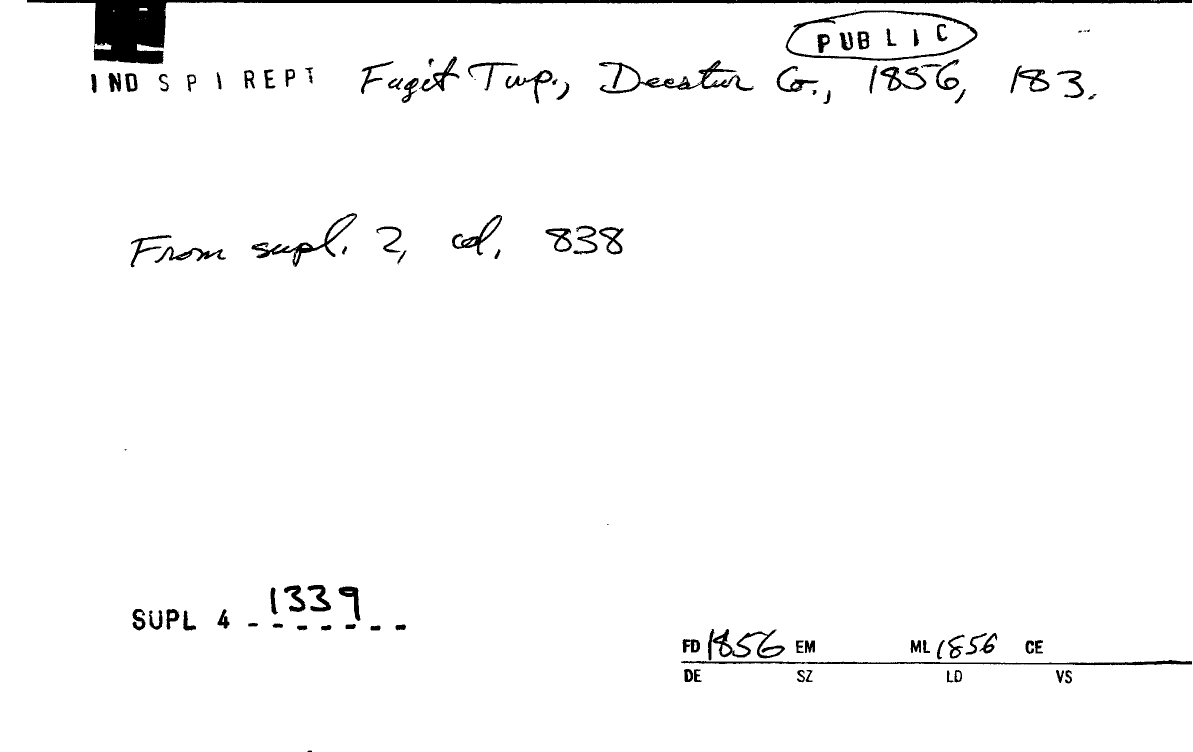 PUBLIC
IND SPI REPT Fugit Twp., Decatur Co., 1856, 183.
From supl. 2, col. 838
SUPL 4 1339
FD 1856 EM ML 1856 CE
DE SZ LD VS